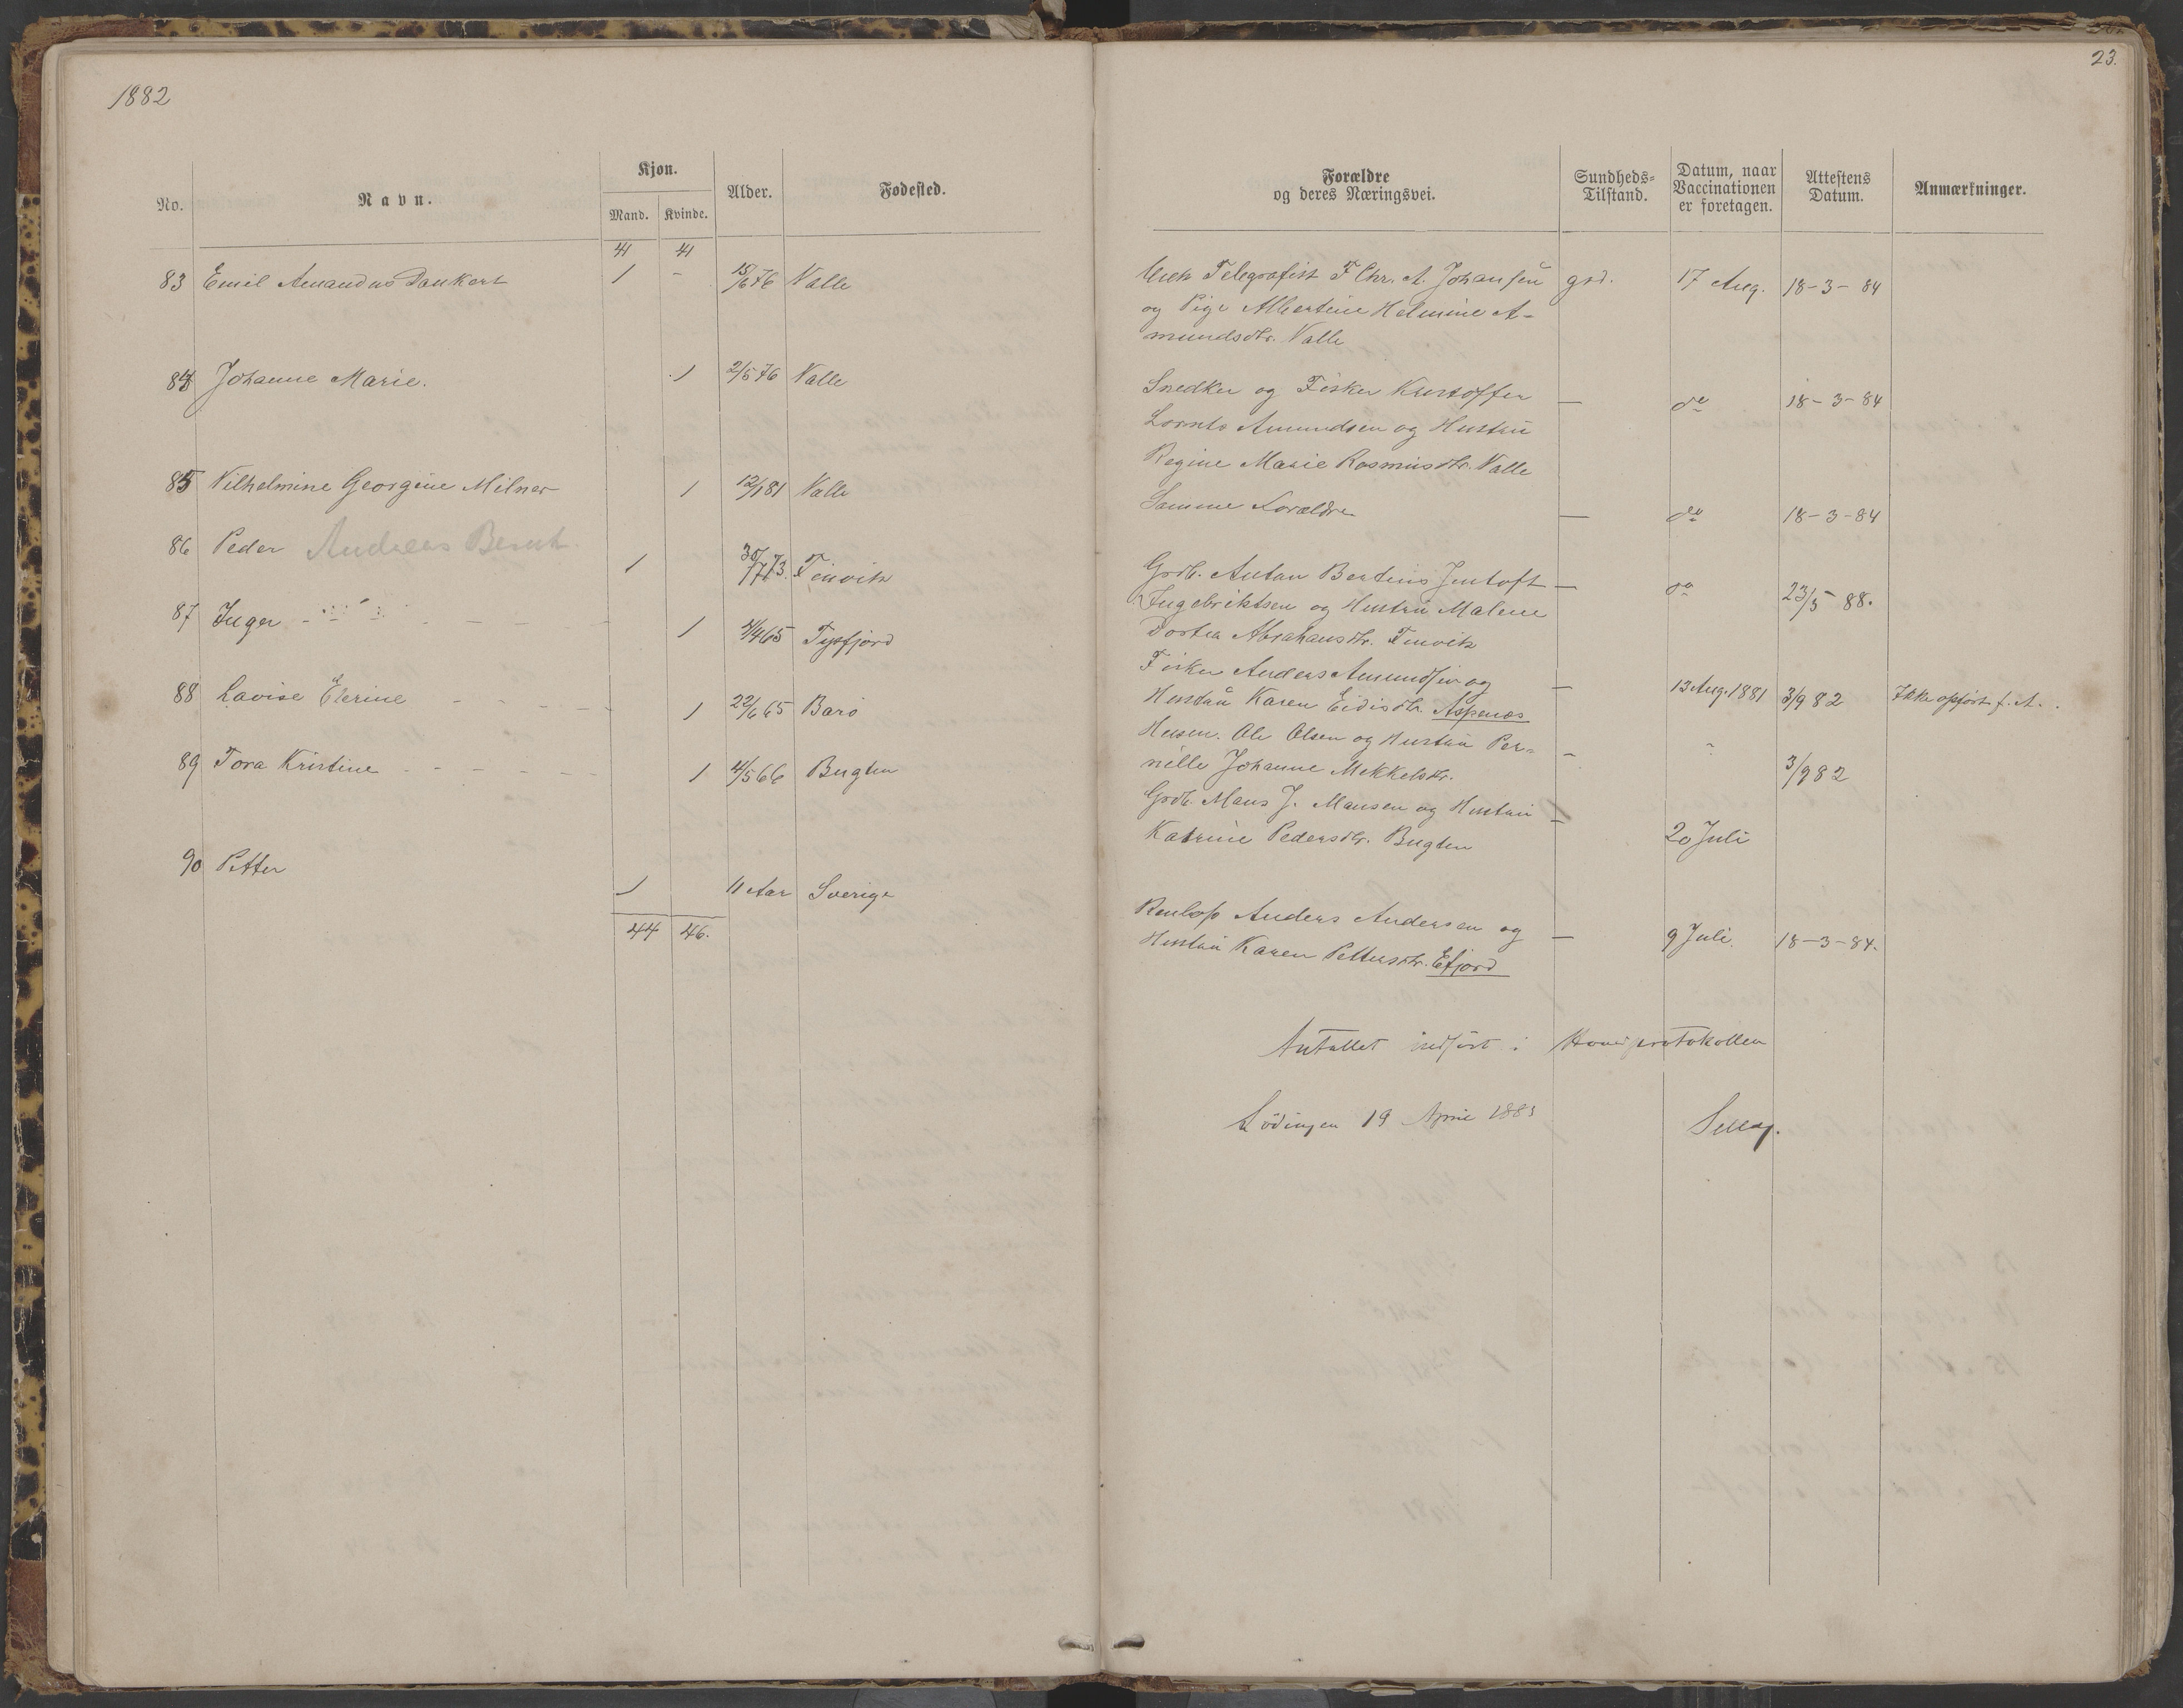 1882
No. Navn. Kjøn. Mand. Kvinde. Alder. Fødested.
41 41
83 Emil Amandus Dankert 1 - 15/6 76 Valle
84 Johanne Marie. 1 2/5 76 Valle
85 Vilhelmine Georgine Milner 1 12/1 81 Valle
86 Peder Andreas Bernt. 1 30/7 73. Finvik
87 Inger 1 4/4 65 Tysfjord
88 Lovise Elerine 1 22/6 65 Barø
89 Tora Kristine 1 4/5 66 Bugten
90 Petter 1 11 Aar Sverige
44 46.
23.
Forældre og deres Næringsvei. Sundheds-Tilstand. Datum, naar Vaccinationen er foretagen. Attestens Datum. Anmærkninger.
Telegrafist F Chr. A. Johansen god. 17 Aug. 18-3-84
og Pige Albertine Helmine A-
mundsdtr. Valle
Snedker og Fisker Kristoffer — do 18-3-84
Lornts Amundsen og Hustru
Regine Marie Rasmusdtr. Valle
Samme Forældre — do 18-3-84
Grdb. Antan Berdins Jentoft — do 23/5 88.
Ingebriktsen og Hustru Malene
Dortea Abrahamsdtr. Finvik
Fisker Anders Amundsen og — 13 Aug. 1881 3/9 82 Ikke opført f. A.
Hustru Karen Eidisdtr. Aspenes
Husm. Ole Olsen og Hustru Per- — " 3/9 82
nille Johanne Mekkelsdtr.
Grdb. Mans J. Mansen og Hustru — 20 Juli
Katrine Pedersdtr. Bugten
Renlap Anders Andersen og — 9 Juli. 18-3-84.
Hustru Karen Pettersdtr. Efjord
Antallet indført i Hovedprotokollen
Lödingen 19 April 1883